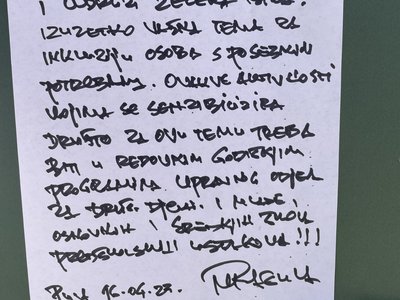 IZUZETKO VAŽNA TEMA ZA
INKLUZIJU OSOBA S POSEBNIM
POTREBAMA. OVAKVE AKTIVNOSTI
KOJIMA SE SENZIBILIZIRA
DRUŠTVO ZA OVU TEMU TREBA
BITI U REDOVNIM GODIŠNJIM
PROGRAMIMA UPRAVNOG ODJELA
ZA DJECU I MLADE,
OSNOVNIH I SREDNJIH ŠKOLA
I !!!
16.04.23.